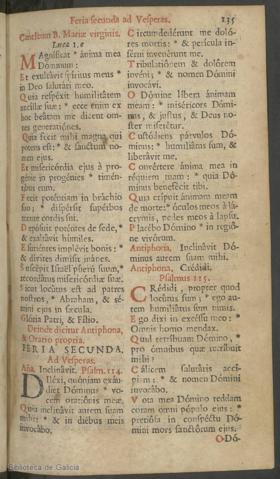 Feria secunda ad Vesperas. 235
Canticum B. Mariæ virginis.
Lucæ 1. e
MAgnificat * ánima mea
Dóminum:
Et exultávit spíritus meus *
in Deo salutári meo.
Quia respéxit humilitátem
ancíllæ suæ: * ecce enim ex
hoc beátam me dicent om-
nes generatiónes.
Quia fecit mihi magna qui
potens est: * & sanctum no-
men ejus.
Et misericórdia ejus à pro-
génie in progénies * timén-
tibus eum.
Fecit poténtiam in bráchio
suo; * dispérsit supérbos
mente cordis sui.
Depósuit poténtes de sede, *
& exaltávit húmiles.
Esuriéntes implévit bonis: *
& dívites dimísit inánes.
Suscépit Israël púerum suum, *
recordátus misericórdiæ suæ.
Sicut locútus est ad patres
nostros, * Abraham, & sé-
mini ejus in sæcula.
Glória Patri, & Fílio.
Deinde dicitur Antiphona,
& Oratio propria.
FERIA SECUNDA.
Ad Vesperas.
Aña. Inclinávit. Psalm. 114.
DIléxi, quóniam exáu-
diet Dóminus * vo-
cem oratiónis meæ.
Quia inclinávit aurem suam
mihi: * & in diébus meis
invocábo.
Circumdedérunt me doló-
res mortis: * & perícula in-
férni invenérunt me.
Tribulatiónem & dolórem
invéni; * & nomen Dómini
invocávi.
O Dómine líbera ánimam
meam: * miséricors Dómi-
nus, & justus, & Deus no-
ster miserétur.
Custódiens párvulos Dó-
minus: * humiliátus sum, &
liberávit me.
Convértere ánima mea in
réquiem tuam: * quia Dó-
minus benefécit tibi.
Quia erípuit ánimam meam
de morte: * óculos meos à lá-
crymis, pedes meos à lapsu.
Placébo Dómino * in regió-
ne vivórum.
Antiphona. Inclinávit Dó-
minus aurem suam mihi.
Antiphona. Crédidi.
Psalmus 115.
CRédidi, propter quod
locútus sum; * ego au-
tem humiliátus sum nimis.
Ego dixi in excéssu meo: *
Omnis homo mendax.
Quid retríbuam Dómino, *
pro ómnibus quæ retríbuit
mihi?
Cálicem salutáris accí-
piam: * & nomen Dómini
invocábo.
Vota mea Dómino reddam
coram omni pópulo ejus: *
pretiósa in conspéctu Dó-
mini mors sanctórum ejus.
O Dó-
Biblioteca de Galicia